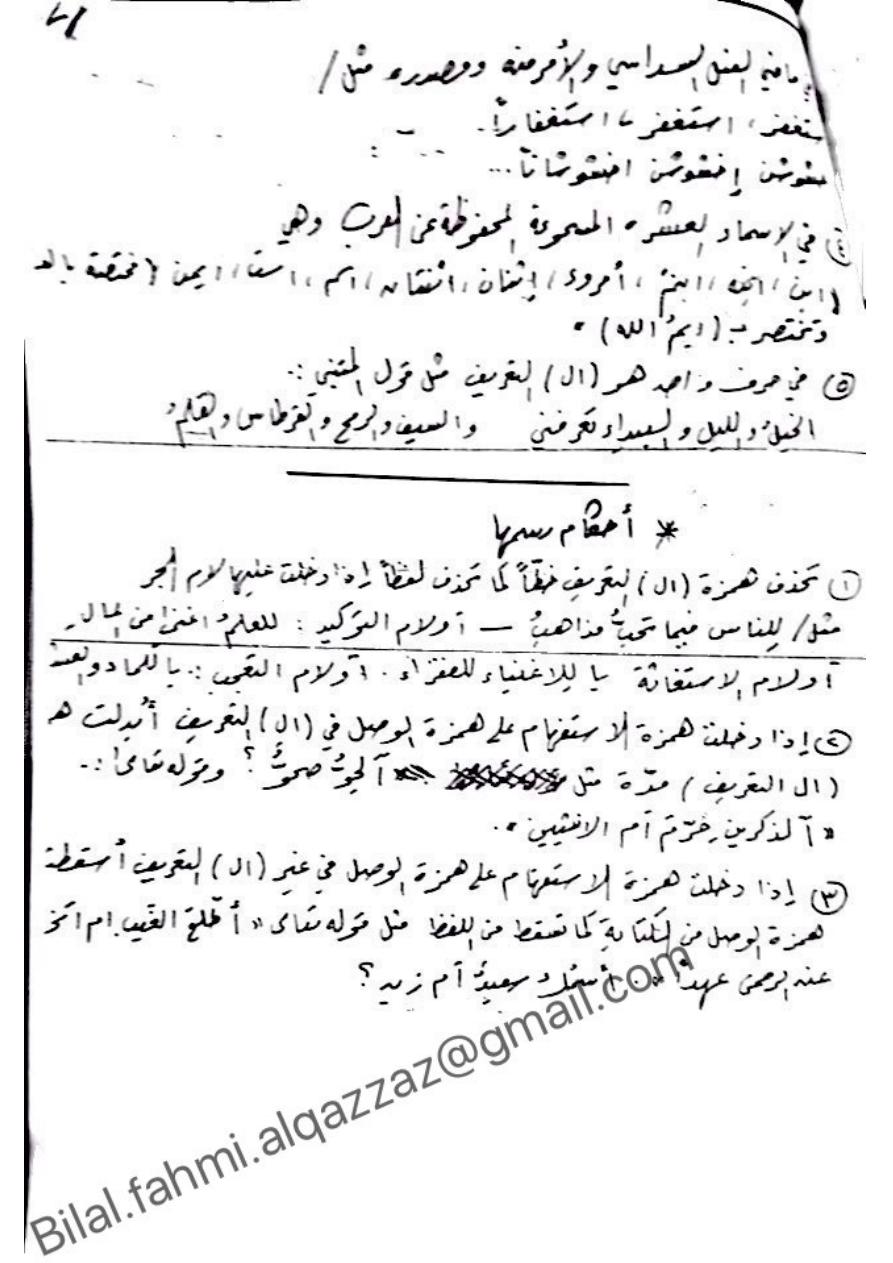 ماضي الفعل السداسي والأمر منه ومصدره مثل /
ستغفر، استغفر، استغفاراً.
شوشن إخشوشن اخشوشاناً...
④ في الاسماء العشرة المسموعة المحفوظة عن العرب وهي
(ابن، ابنة، ابنم، امرؤ، إثنان، اثنتان، اسم، است، ايمن (مختصة بالله
وتختصر بـ (ايمُ الله).
⑤ في حرف واحد هو (ال) التعريف مثل قول المتنبي:.
الخيلُ والليل والبيداء تعرفني والسيف والرمح والقرطاس والقلمُ
* أحكام رسمها
① تحذف همزة (ال) التعريف خطّاً كما تحذف لفظاً إذا دخلت عليها لام الجر
مثل / للناس فيما تحبُّ مذاهبُ — أو لام التوكيد : للعلمُ اغنى من المال.
أو لام الاستغاثة يا للاغنياء للفقراء. أو لام التعجب :. يا للماء و
② إذا دخلت همزة الاستفهام على همزة الوصل في (ال) التعريف أُبدلت هـ
(ال التعريف) مدّة مثل آلجوُّ صحوٌ؟ وقوله تعالى :.
« آلذكرين حرّم أم الانثيين ».
③ إذا دخلت همزة الاستفهام على همزة الوصل في غير (ال) التعريف أسقطت
همزة الوصل من الكتابة كما تسقط من اللفظ مثل قوله تعالى « أطّلع الغيب ام اتخذ
عند الرحمن عهداً ». أسمُك سعيدٌ أم زيد؟
Bilal.fahmi.alqazzaz@gmail.com